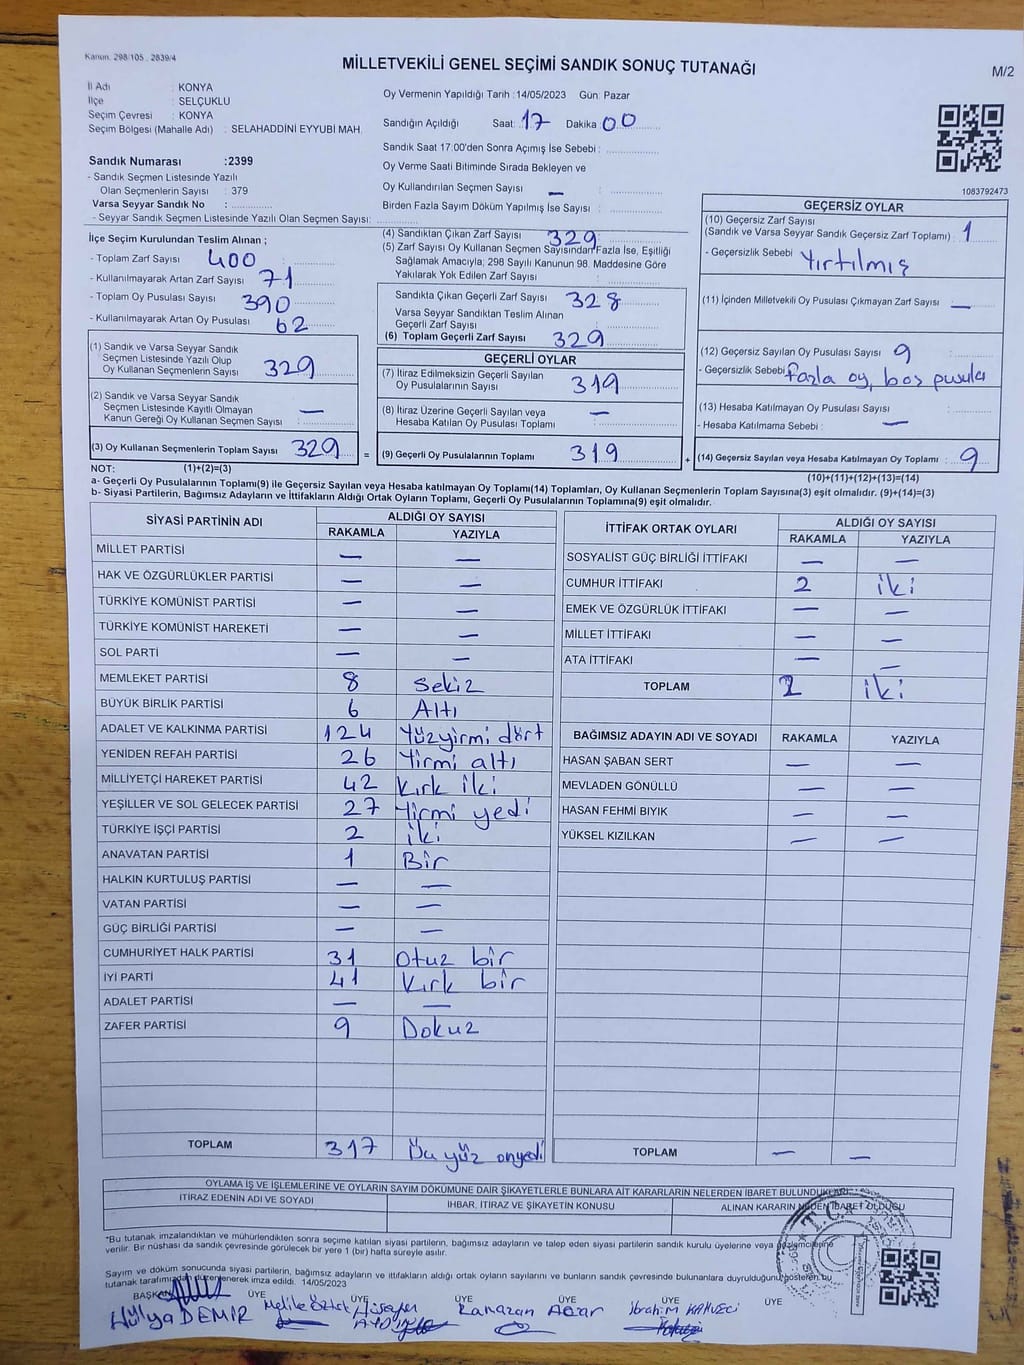 Kanun. 298/105 . 2839/4
MİLLETVEKİLİ GENEL SEÇİMİ SANDIK SONUÇ TUTANAĞI
M/2
İl Adı : KONYA
İlçe : SELÇUKLU
Seçim Çevresi : KONYA
Seçim Bölgesi (Mahalle Adı) : SELAHADDİNİ EYYUBİ MAH.
Sandık Numarası :2399
- Sandık Seçmen Listesinde Yazılı
Olan Seçmenlerin Sayısı : 379
Varsa Seyyar Sandık No :
- Seyyar Sandık Seçmen Listesinde Yazılı Olan Seçmen Sayısı:
Oy Vermenin Yapıldığı Tarih :14/05/2023 Gün: Pazar
Sandığın Açıldığı Saat: 17 Dakika 00
Sandık Saat 17.00'den Sonra Açımış İse Sebebi :
Oy Verme Saati Bitiminde Sırada Bekleyen ve
Oy Kullandırılan Seçmen Sayısı — :
Birden Fazla Sayım Döküm Yapılmış İse Sayısı :
1083792473
İlçe Seçim Kurulundan Teslim Alınan ;
- Toplam Zarf Sayısı 400
- Kullanılmayarak Artan Zarf Sayısı 71
- Toplam Oy Pusulası Sayısı 390
- Kullanılmayarak Artan Oy Pusulası 62
(1) Sandık ve Varsa Seyyar Sandık
Seçmen Listesinde Yazılı Olup
Oy Kullanan Seçmenlerin Sayısı 329
(2) Sandık ve Varsa Seyyar Sandık
Seçmen Listesinde Kayıtlı Olmayan
Kanun Gereği Oy Kullanan Seçmen Sayısı : —
(3) Oy Kullanan Seçmenlerin Toplam Sayısı 329
(4) Sandıktan Çıkan Zarf Sayısı 329
(5) Zarf Sayısı Oy Kullanan Seçmen Sayısından Fazla İse, Eşitliği
Sağlamak Amacıyla; 298 Sayılı Kanunun 98. Maddesine Göre
Yakılarak Yok Edilen Zarf Sayısı :
Sandıkta Çıkan Geçerli Zarf Sayısı 328
Varsa Seyyar Sandıktan Teslim Alınan
Geçerli Zarf Sayısı :
(6) Toplam Geçerli Zarf Sayısı 329
GEÇERLİ OYLAR
(7) İtiraz Edilmeksizin Geçerli Sayılan
Oy Pusulalarının Sayısı 319
(8) İtiraz Üzerine Geçerli Sayılan veya
Hesaba Katılan Oy Pusulası Toplamı —
=
(9) Geçerli Oy Pusulalarının Toplamı 319
+
GEÇERSİZ OYLAR
(10) Geçersiz Zarf Sayısı
(Sandık ve Varsa Seyyar Sandık Geçersiz Zarf Toplamı) : 1
- Geçersizlik Sebebi : Yırtılmış
(11) İçinden Milletvekili Oy Pusulası Çıkmayan Zarf Sayısı —
(12) Geçersiz Sayılan Oy Pusulası Sayısı 9
- Geçersizlik Sebebi fazla oy, boş pusula
(13) Hesaba Katılmayan Oy Pusulası Sayısı :
- Hesaba Katılmama Sebebi : —
(14) Geçersiz Sayılan veya Hesaba Katılmayan Oy Toplamı : 9
NOT: (1)+(2)=(3)
(10)+(11)+(12)+(13)=(14)
a- Geçerli Oy Pusulalarının Toplamı(9) ile Geçersiz Sayılan veya Hesaba katılmayan Oy Toplamı(14) Toplamları, Oy Kullanan Seçmenlerin Toplam Sayısına(3) eşit olmalıdır. (9)+(14)=(3)
b- Siyasi Partilerin, Bağımsız Adayların ve İttifakların Aldığı Ortak Oyların Toplamı, Geçerli Oy Pusulalarının Toplamına(9) eşit olmalıdır.
SİYASİ PARTİNİN ADI ALDIĞI OY SAYISI
RAKAMLA YAZIYLA
MİLLET PARTİSİ — —
HAK VE ÖZGÜRLÜKLER PARTİSİ — —
TÜRKİYE KOMÜNİST PARTİSİ — —
TÜRKİYE KOMÜNİST HAREKETİ — —
SOL PARTİ — —
MEMLEKET PARTİSİ 8 Sekiz
BÜYÜK BİRLİK PARTİSİ 6 Altı
ADALET VE KALKINMA PARTİSİ 124 Yüzyirmi dört
YENİDEN REFAH PARTİSİ 26 Yirmi altı
MİLLİYETÇİ HAREKET PARTİSİ 42 Kırk iki
YEŞİLLER VE SOL GELECEK PARTİSİ 27 Yirmi yedi
TÜRKİYE İŞÇİ PARTİSİ 2 iki
ANAVATAN PARTİSİ 1 Bir
HALKIN KURTULUŞ PARTİSİ — —
VATAN PARTİSİ — —
GÜÇ BİRLİĞİ PARTİSİ — —
CUMHURİYET HALK PARTİSİ 31 Otuz bir
İYİ PARTİ 41 Kırk bir
ADALET PARTİSİ — —
ZAFER PARTİSİ 9 Dokuz
TOPLAM 317 Üç yüz onyedi
İTTİFAK ORTAK OYLARI ALDIĞI OY SAYISI
RAKAMLA YAZIYLA
SOSYALİST GÜÇ BİRLİĞİ İTTİFAKI — —
CUMHUR İTTİFAKI 2 iki
EMEK VE ÖZGÜRLÜK İTTİFAKI — —
MİLLET İTTİFAKI — —
ATA İTTİFAKI — —
TOPLAM 2 iki
BAĞIMSIZ ADAYIN ADI VE SOYADI RAKAMLA YAZIYLA
HASAN ŞABAN SERT — —
MEVLADEN GÖNÜLLÜ — —
HASAN FEHMI BIYIK — —
YÜKSEL KIZILKAN — —
TOPLAM — —
OYLAMA İŞ VE İŞLEMLERİNE VE OYLARIN SAYIM DÖKÜMÜNE DAİR ŞİKAYETLERLE BUNLARA AİT KARARLARIN NELERDEN İBARET BULUNDUKLARI
İTİRAZ EDENİN ADI VE SOYADI İHBAR, İTİRAZ VE ŞİKAYETİN KONUSU ALINAN KARARIN NEDEN İBARET OLDUĞU
*Bu tutanak imzalandıktan ve mühürlendikten sonra seçime katılan siyasi partilerin, bağımsız adayların ve talep eden siyasi partilerin sandık kurulu üyelerine veya gözlemcilerine
verilir. Bir nüshası da sandık çevresinde görülecek bir yere 1 (bir) hafta süreyle asılır.
Sayım ve döküm sonucunda siyasi partilerin, bağımsız adayların ve ittifakların aldığı ortak oyların sayılarını ve bunların sandık çevresinde bulunanlara duyrulduğunu gösteren bu
tutanak tarafımızdan düzenlenerek imza edildi. 14/05/2023
BAŞKAN ÜYE ÜYE ÜYE ÜYE ÜYE
Hülya DEMİR Melike Öztürk Hüseyin Ramazan Acar İbrahim KAHVECİ
T.C.